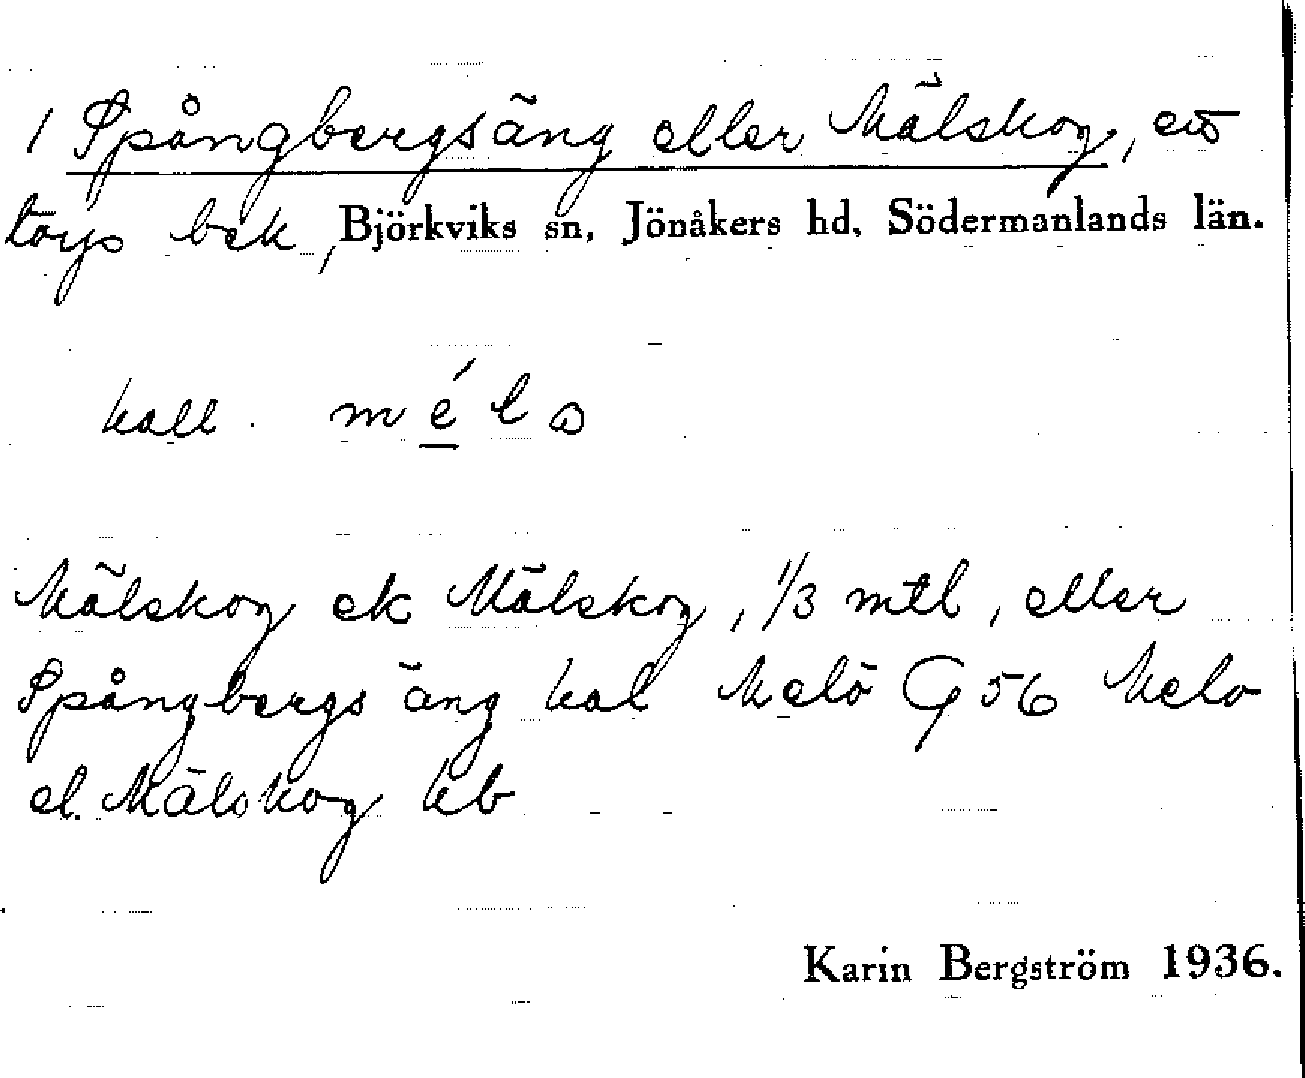 1 Spångbergsäng eller Mälskog, ett
torps bek, Björkviks sn, Jönåkers hd, Södermanlands län.
kall. mélo
Mälskog ek Mälskog, 1/3 mtl, eller
Spångbergs äng kal Melö G 56 Melo
el. Mälskog kb
Karin Bergström 1936.